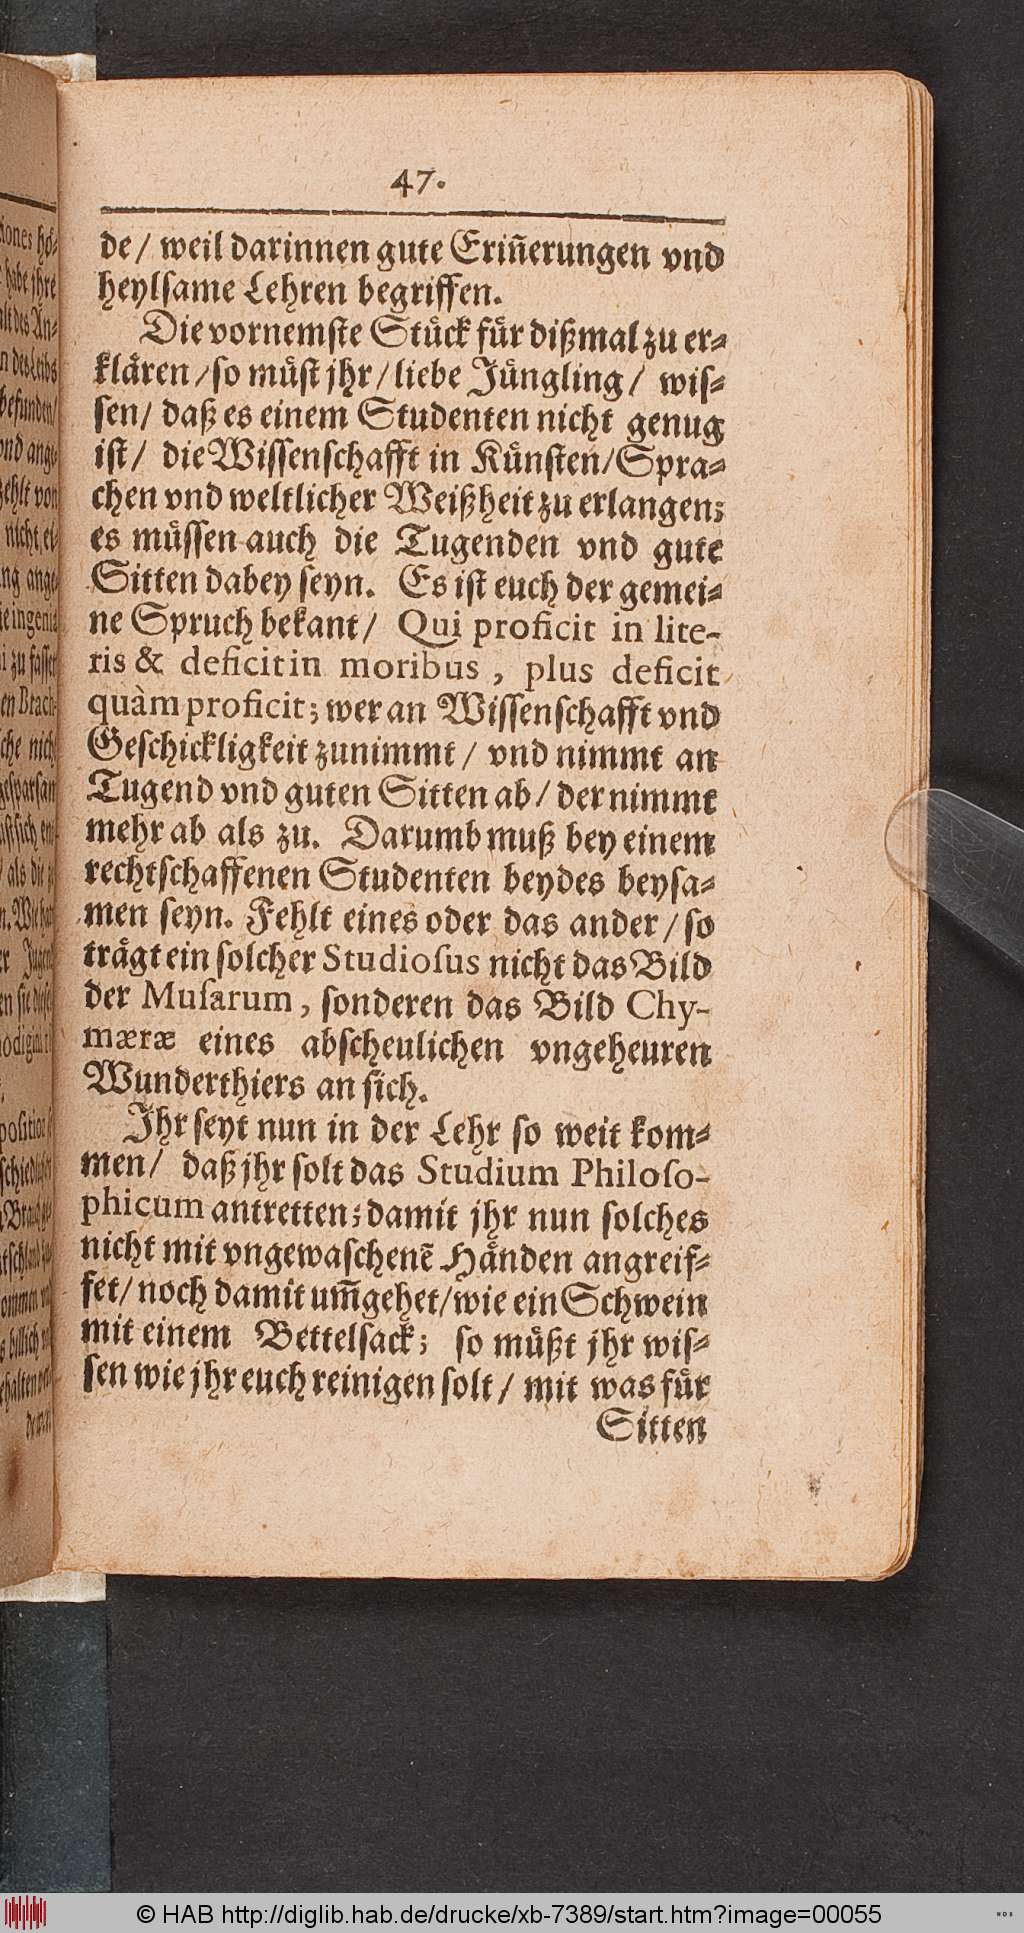 47.
de/ weil darinnen gute Eriñerungen vnd
heylsame Lehren begriffen.
Die vornemste Stuͤck fuͤr dißmal zu er-
klaͤren/so muͤst jhr/liebe Juͤngling/ wis-
sen/ daß es einem Studenten nicht genug
ist/ die Wissenschafft in Kuͤnsten/Spra-
chen vnd weltlicher Weißheit zu erlangen;
es muͤssen auch die Tugenden vnd gute
Sitten dabey seyn. Es ist euch der gemei-
ne Spruch bekant/ Qui proficit in lite-
ris & deficit in moribus, plus deficit
quàm proficit; wer an Wissenschafft vnd
Geschickligkeit zunimmt/ vnd nimmt an
Tugend vnd guten Sitten ab/ der nimmt
mehr ab als zu. Darumb muß bey einem
rechtschaffenen Studenten beydes beysa-
men seyn. Fehlt eines oder das ander/so
traͤgt ein solcher Studioſus nicht das Bild
der Muſarum, sonderen das Bild Chy-
mæræ eines abscheulichen vngeheuren
Wunderthiers an sich.
Jhr seyt nun in der Lehr so weit kom-
men/ daß jhr solt das Studium Philoſo-
phicum antretten; damit jhr nun solches
nicht mit vngewaschenẽ Haͤnden angreif-
fet/noch damit um̃gehet/wie ein Schwein
mit einem Bettelsack; so muͤßt jhr wis-
sen wie jhr euch reinigen solt/ mit was fuͤr
Sitten
© HAB http://diglib.hab.de/drucke/xb-7389/start.htm?image=00055